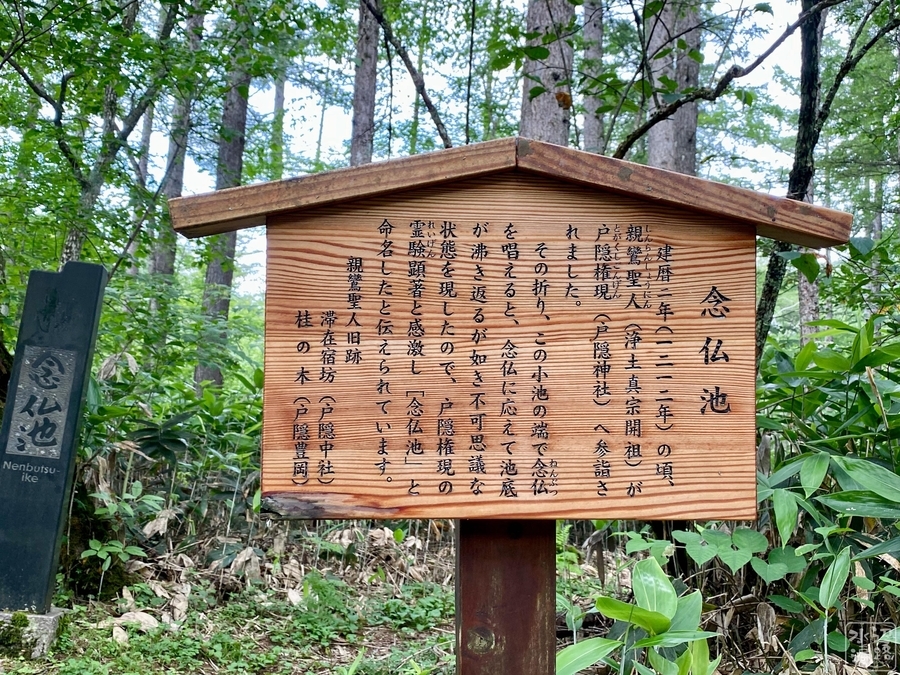 念仏池
建暦二年（一二一二年）の頃、
親鸞聖人（浄土真宗開祖）が
しんらんしょうにん
戸隠権現（戸隠神社）へ参詣さ
とがくしごんげん
れました。
その折り、この小池の端で念仏
ねんぶつ
を唱えると、念仏に応えて池底
が沸き返るが如き不可思議な
状態を現したので、戸隠権現の
霊験顕著と感激し「念仏池」と
れいげん
命名したと伝えられています。
親鸞聖人旧跡
滞在宿坊（戸隠中社）
桂の木（戸隠豊岡）
念仏池
Nenbutsu-
ike